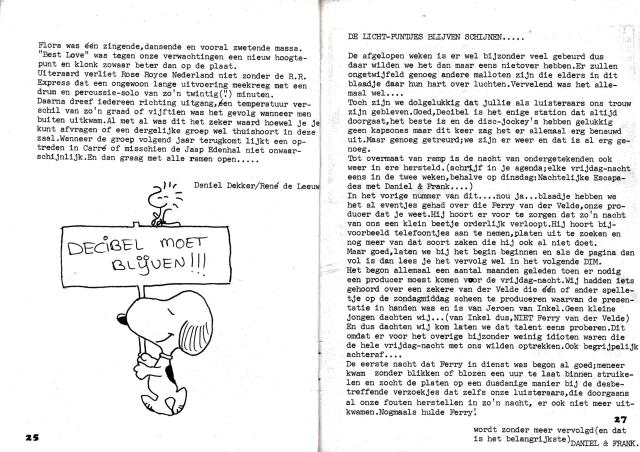 Flora was één zingende,dansende en vooral zwetende massa.
"Best Love" was tegen onze verwachtingen een nieuw hoogte-
punt en klonk zowaar beter dan op de plaat.
Uiteraard verliet Rose Royce Nederland niet zonder de R.R.
Express dat een ongewoon lange uitvoering meekreeg met een
drum en percussie-solo van zo'n twintig(") minuten.
Daarna dreef iedereen richting uitgang,een temperatuur ver-
schil van zo'n graad of vijftien was het gevolg wanneer men
buiten uitkwam.Al met al was dit het zeker waard hoewel je je
kunt afvragen of een dergelijke groep wel thuishoort in deze
zaal.Wanneer de groep volgend jaar terugkomt lijkt een op-
treden in Carré of misschien de Jaap Edenhal niet onwaar-
schijnlijk.En dan graag met alle ramen open.....
Daniel Dekker/René de Leeuw
DECIBEL MOET
BLIJVEN!!!
25
DE LICHT-PUNTJES BLIJVEN SCHIJNEN.....
De afgelopen weken is er wel bijzonder veel gebeurd dus
daar wilden we het dan maar eens nietover hebben.Er zullen
ongetwijfeld genoeg andere malloten zijn die elders in dit
blaadje daar hun hart over luchten.Vervelend was het alle-
maal wel....
Toch zijn we dolgelukkig dat jullie als luisteraars ons trouw
zijn gebleven.Goed,Decibel is het enige station dat altijd
doorgaat,het beste is en de disc-jockey's hebben gelukkig
geen kapsones maar dit keer zag het er allemaal erg benauwd
uit.Maar genoeg getreurd;we zijn er weer en dat is al erg ge-
noeg.
Tot overmaat van ramp is de nacht van ondergetekenden ook
weer in ere hersteld.(schrijf in je agenda;elke vrijdag-nacht
eens in de twee weken,behalve op dinsdag:Nachtelijke Escapa-
des met Daniel & Frank....)
In het vorige nummer van dit....nou ja...blaadje hebben we
het al eventjes gehad over die Ferry van der Velde,onze pro-
ducer dat je weet.Hij hoort er voor te zorgen dat zo'n nacht
van ons een klein beetje orderlijk verloopt.Hij hoort bij-
voorbeeld telefoontjes aan te nemen,platen uit te zoeken en
nog meer van dat soort zaken die hij ook al niet doet.
Maar goed,laten we bij het begin beginnen en als de pagina dan
vol is dan lees je het vervolg wel in het volgende DIM.
Het begon allemaal een aantal maanden geleden toen er nodig
een producer moest komen voor de vrijdag-nacht.Wij hadden iets
gehoord over een zekere van der Velde die één of ander spelle-
tje op de zondagmiddag scheen te produceren waarvan de presen-
tatie in handen was en is van Jeroen van Inkel.Geen kleine
jongen dachten wij...(van Inkel dus,NIET Ferry van der Velde)
En dus dachten wij kom laten we dat talent eens proberen.Dit
omdat er voor het overige bijzonder weinig idioten waren die
de hele vrijdag-nacht met ons wilden optrekken.Ook begrijpelijk
achteraf....
De eerste nacht dat Ferry in dienst was begon al goed;meneer
kwam zonder blikken of blozen een uur te laat binnen struike-
len en zocht de platen op een dusdanige manier bij de desbe-
treffende verzoekjes dat zelfs onze luisteraars,die doorgaans
al onze fouten herstellen in zo'n nacht, er ook niet meer uit-
kwamen.Nogmaals hulde Ferry!
27
wordt zonder meer vervolgd(en dat
is het belangrijkste)
DANIEL & FRANK.